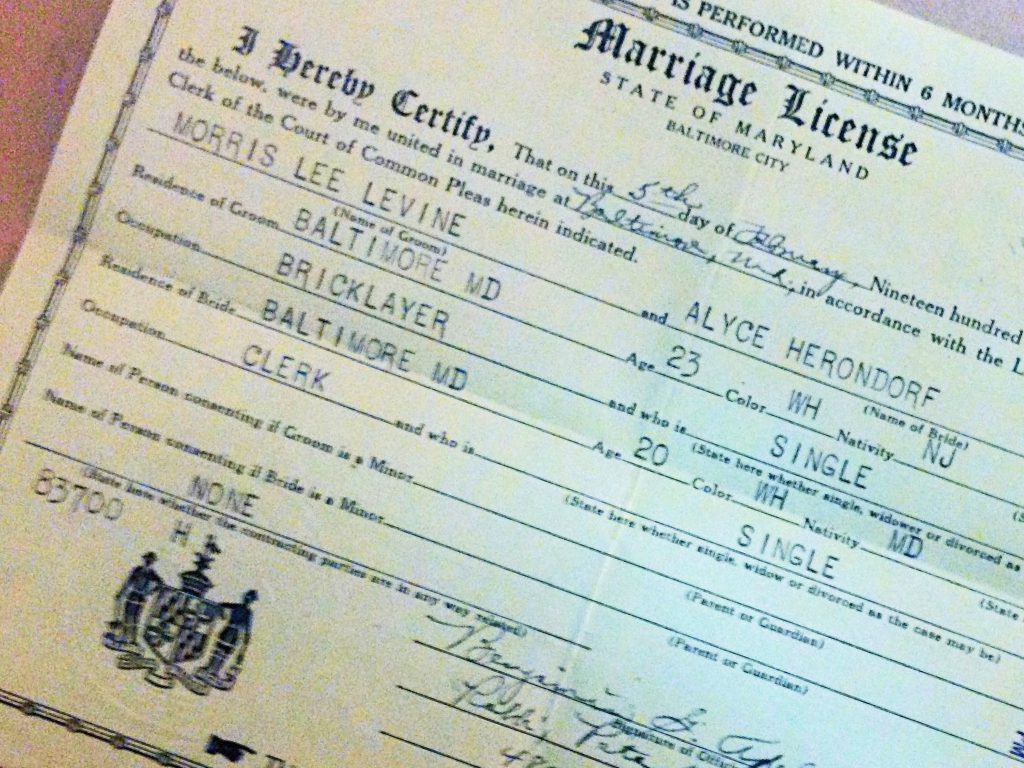 IS PERFORMED WITHIN 6 MONTHS
Marriage License
STATE OF MARYLAND
BALTIMORE CITY
I Hereby Certify, That on this 5th day of February, Nineteen hundred
the below, were by me united in marriage at Baltimore, Md., in accordance with the
Clerk of the Court of Common Pleas herein indicated.
MORRIS LEE LEVINE and ALYCE HERONDORF
(Name of Groom) (Name of Bride)
Residence of Groom BALTIMORE MD Age 23 Color WH Nativity NJ
Occupation BRICKLAYER and who is SINGLE
(State here whether single, widower or divorced as
Residence of Bride BALTIMORE MD Age 20 Color WH Nativity MD
Occupation CLERK and who is SINGLE
(State here whether single, widow or divorced as the case may be)
(State
Name of Person consenting if Groom is a Minor
(Parent or Guardian)
Name of Person consenting if Bride is a Minor
(Parent or Guardian)
NONE
(State here whether the contracting parties are in any way related)
83700 H
Signature of